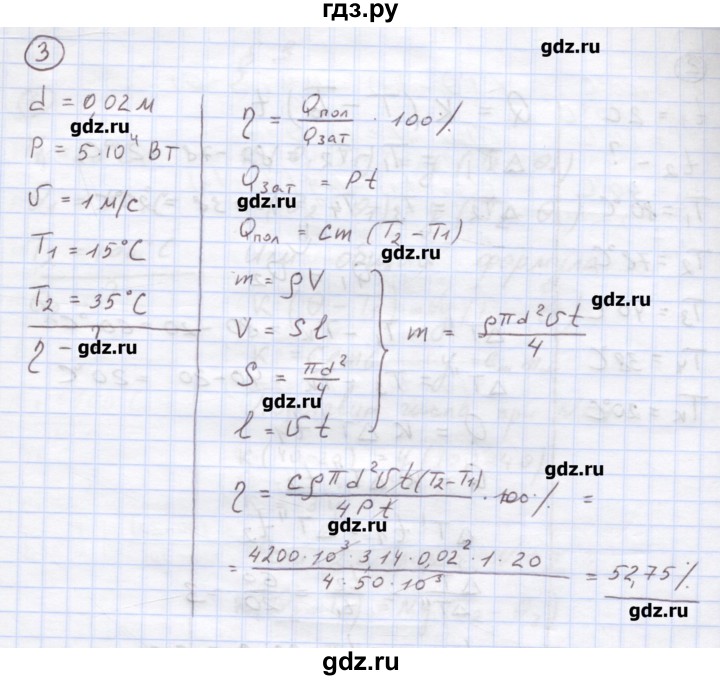 гдз.ру
3
gdz.ru
d = 0,02 м
gdz.ru
P = 5·10⁴ Вт
υ = 1 м/с
T₁ = 15°C
T₂ = 35°C
η - ?
gdz.ru
η = Qпол / Qзат · 100%
Qзат = Pt
gdz.ru
Qпол = cm (T₂ - T₁)
gdz.ru
m = ρV
V = Sl
S = πd² / 4
gdz.ru
l = υt
gdz.ru
m = ρπd²υt / 4
gdz.ru
η = cρπd²υt(T₂-T₁) / 4Pt · 100% =
gdz.ru
= 4200·10³·3,14·0,02²·1·20 / 4·50·10³ = 52,75%
gdz.ru
gdz.ru